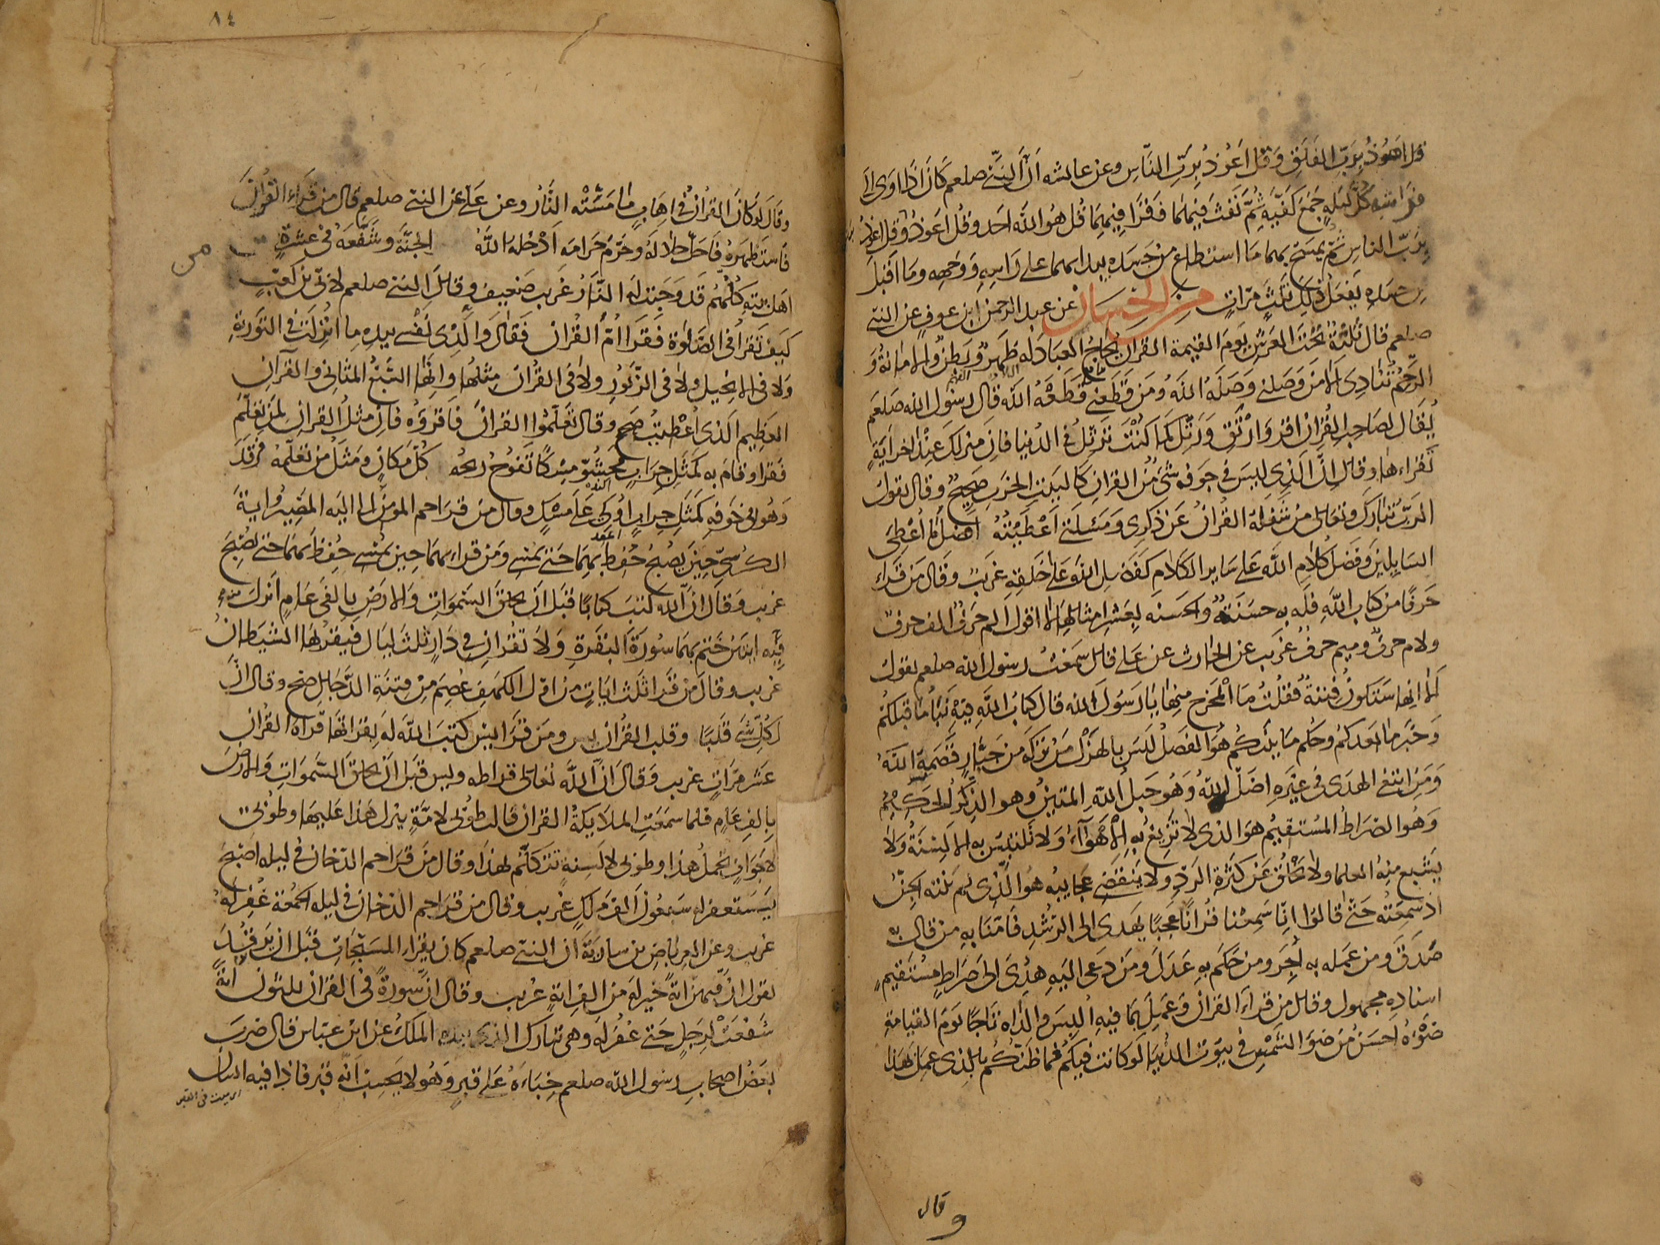 قل اعوذ برب الفلق وقل اعوذ برب الناس وعن عايشه ان النبي صلعم كان اذا اوى الى
فراشه كل ليلة جمع كفيه ثم نفث فيهما فقرا فيهما قل هو الله احد وقل اعوذ وقل اعوذ
برب الناس ثم يمسح بهما ما استطاع من جسده يبدا بهما على راسه ووجهه وما اقبل
من جسده يفعل ذلك ثلث مرات من الحسان عن عبد الرحمن ابن عوف عن النبي
صلعم قال ثلثة تحت العرش يوم القيمة القران يحاج العباد له ظهر وبطن والامانة و
الرحم تنادي الا من وصلني وصله الله ومن قطعني قطعه الله قال رسول الله صلعم
يقال لصاحب القران اقرا وارتق ورتل كما كنت ترتل في الدنيا فان منزلك عند اخر اية
تقراءها وقال ان الذي ليس في جوفه شئ من القران كالبيت الخرب صحيح وقال يقول
الرب تبارك وتعالى من شغله القران عن ذكري ومسلتي اعطيته افضل ما اعطي
السايلين وفضل كلام الله على ساير الكلام كفضل الله على خلقه غريب وقال من قراء
حرفا من كتاب الله فله به حسنة والحسنه بعشر امثالها لا اقول الم حرف الف حرف
ولام حرف وميم حرف غريب عن الحارث عن علي قال سمعت رسول الله صلعم يقول
الا انها ستكون فتنة فقلت ما المخرج منها يا رسول الله قال كتاب الله فيه نبا ما قبلكم
وخبر ما بعدكم وحكم ما بينكم هو الفصل ليس بالهزل من تركه من جبار قصمه الله
ومن ابتغى الهدى في غيره اضل الله وهو حبل الله المتين وهو الذكر الحكيم
وهو الصراط المستقيم هو الذي لا تزيغ به الاهواء ولا تلتبس به الالسنة ولا
يشبع منه العلما ولا يخلق عن كثرة الرد ولا ينقضي عجايبه هو الذي لم تنته الجن
اذ سمعته حتى قالوا انا سمعنا قرانا عجبا يهدى الى الرشد فامنا به من قال به
صدق ومن عمله به اجر ومن حكم به عدل ومن دعى اليه هدى الى صراط مستقيم
اسناده مجهول وقال من قراء القران وعمل بما فيه البس والداه تاجا يوم القيامة
ضوءه احسن من ضو الشمس في بيوت الدنيا لو كانت فيكم فما ظنكم بالذي عمل بهذا
وقال
٨٤
وقال لو كان القران في اهاب ما مسته النار وعن علي عن النبي صلعم قال من قراء القران
فاستظهره فاحل حلاله وحرم حرامه ادخله الله الجنة وشفعه في عشرة من
اهل بيته كلهم قد وجبت له النار غريب ضعيف وقال النبي صلعم لابي بن كعب
كيف تقرا في الصلوة فقرا ام القران فقال والذي نفسي بيده ما انزلت في التورية
ولا في الانجيل ولا في الزبور ولا في القران مثلها وانها السبع المثاني والقران
العظيم الذي اعطيت صح وقال تعلموا القران فاقروه فان مثل القران لمن تعلم
فقرا وقام به كمثل جراب محشو مسكا تفوح ريحه كل مكان ومثل من تعلمه فرقد
وهو في جوفه كمثل جراب اوكي على مسك وقال من قرا حم المومن الى اليه المصير واية
الكرسي حين يصبح حفظ بهما حتى يمسي ومن قراء بهما حين يمسي حفظ بهما حتى يصبح
غريب وقال ان الله كتب كتابا قبل ان يخلق السموات والارض بالفي عام انزل
فيه ايتين ختم بهما سورة البقرة ولا تقران في دار ثلث ليال فيقربها الشيطان
غريب وقال من قرا ثلث ايات من اول الكهف عصم من فتنة الدجال صح وقال ان
لكل شي قلبا وقلب القران يس ومن قرا يس كتب الله له بقراتها قراة القران
عشر مرات غريب وقال ان الله تعالى قرا طه ويس قبل ان يخلق السموات والارض
بالف عام فلما سمعت الملايكة القران قالت طوبى لامة ينزل هذا عليها وطوبى
لاجواف تحمل هذا وطوبى لالسنة تتكلم بهذا وقال من قرا حم الدخان في ليله اصبح
يستغفر له سبعون الف ملك غريب وقال من قرا حم الدخان في ليله الجمعة غفر له
غريب وعن العرباض بن سارية ان النبي صلعم كان يقراء المسبحات قبل ان يرقد
يقول ان فيهن اية خير من الف اية غريب وقال ان سورة في القران ثلثون اية
شفعت لرجل حتى غفر له وهي تبارك الذي بيده الملك عن ابن عباس قال ضرب
بعض اصحاب رسول الله صلعم خباءه على قبر وهو لا يحسب انه قبر فاذا فيه انسان
من